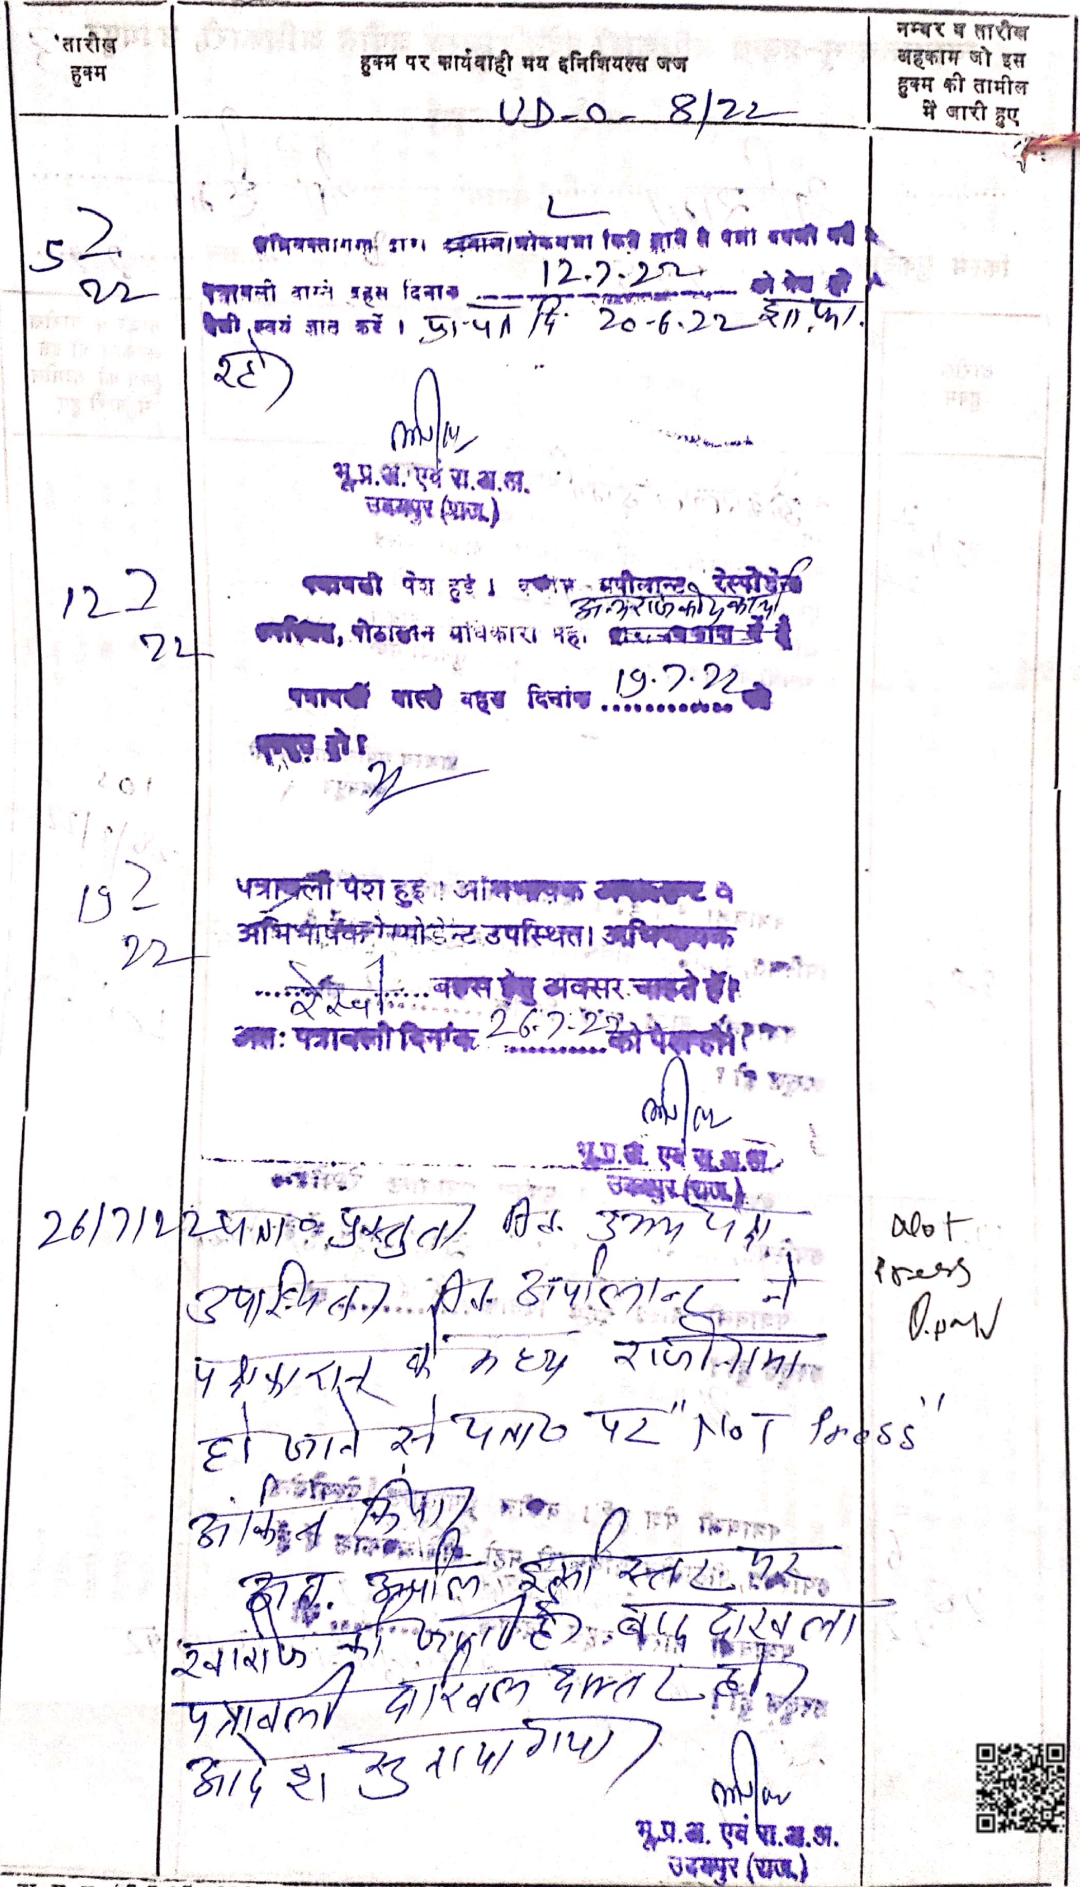 तारीख
हुक्म
हुक्म पर कार्यवाही मय इनिशियल्स जज
नम्बर व तारीख
अहकाम जो इस
हुक्म की तामील
में जारी हुए
UD-0- 8/22
5 7
22
12.7.22
पत्रावली वास्ते बहस दिनांक को पेश हो
पेशी स्वयं ज्ञात करें । प्रा. पत्र दि. 20-6-22
रहे।
भू.प्र.अ. एवं रा.अ.अ.
उदयपुर (राज.)
12 7
22
पत्रावली पेश हुई । अपीलान्ट व रेस्पोंडेन्ट
अन्य राजकीय कार्य
उपस्थित, पीठासीन अधिकारी महो.
पत्रावली वास्ते बहस दिनांक 19.7.22 को
प्रस्तुत हो।
19 7
22
पत्रावली पेश हुई। अभिभाषक अपीलान्ट व
अभिभाषक रेस्पोडेन्ट उपस्थित। अभिभाषक
रेस्पो बहस हेतु अवसर चाहते हैं।
अतः पत्रावली दिनांक 26.7.22 को पेश हो।
भू.प्र.अ. एवं रा.अ.अ.
उदयपुर (राज.)
26/7/22 पत्रा० प्रस्तुत। उभय पक्ष
उपस्थित। अपीलान्ट ने
पक्षकारान के मध्य राजीनामा
हो जाने से पत्रा० पर "NOT Press"
अंकित किया।
Not
Press
अतः अपील इसी स्तर पर
खारीज की जाती है। बाद दाखला
पत्रावली दाखिल दफ्तर हो।
आदेश सुनाया गया।
भू.प्र.अ. एवं रा.अ.अ.
उदयपुर (राज.)